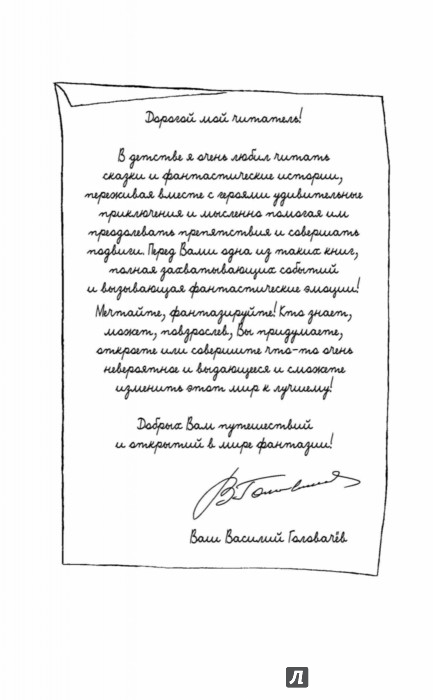 Дорогой мой читатель!
В детстве я очень любил читать
сказки и фантастические истории,
переживая вместе с героями удивительные
приключения и мысленно помогая им
преодолевать препятствия и совершать
подвиги. Перед Вами одна из таких книг,
полная захватывающих событий
и вызывающая фантастические эмоции!
Мечтайте, фантазируйте! Кто знает,
может, повзрослев, Вы придумаете,
откроете или совершите что-то очень
невероятное и выдающееся и сможете
изменить этот мир к лучшему!
Добрых Вам путешествий
и открытий в мире фантазии!
Ваш Василий Головачёв
Л